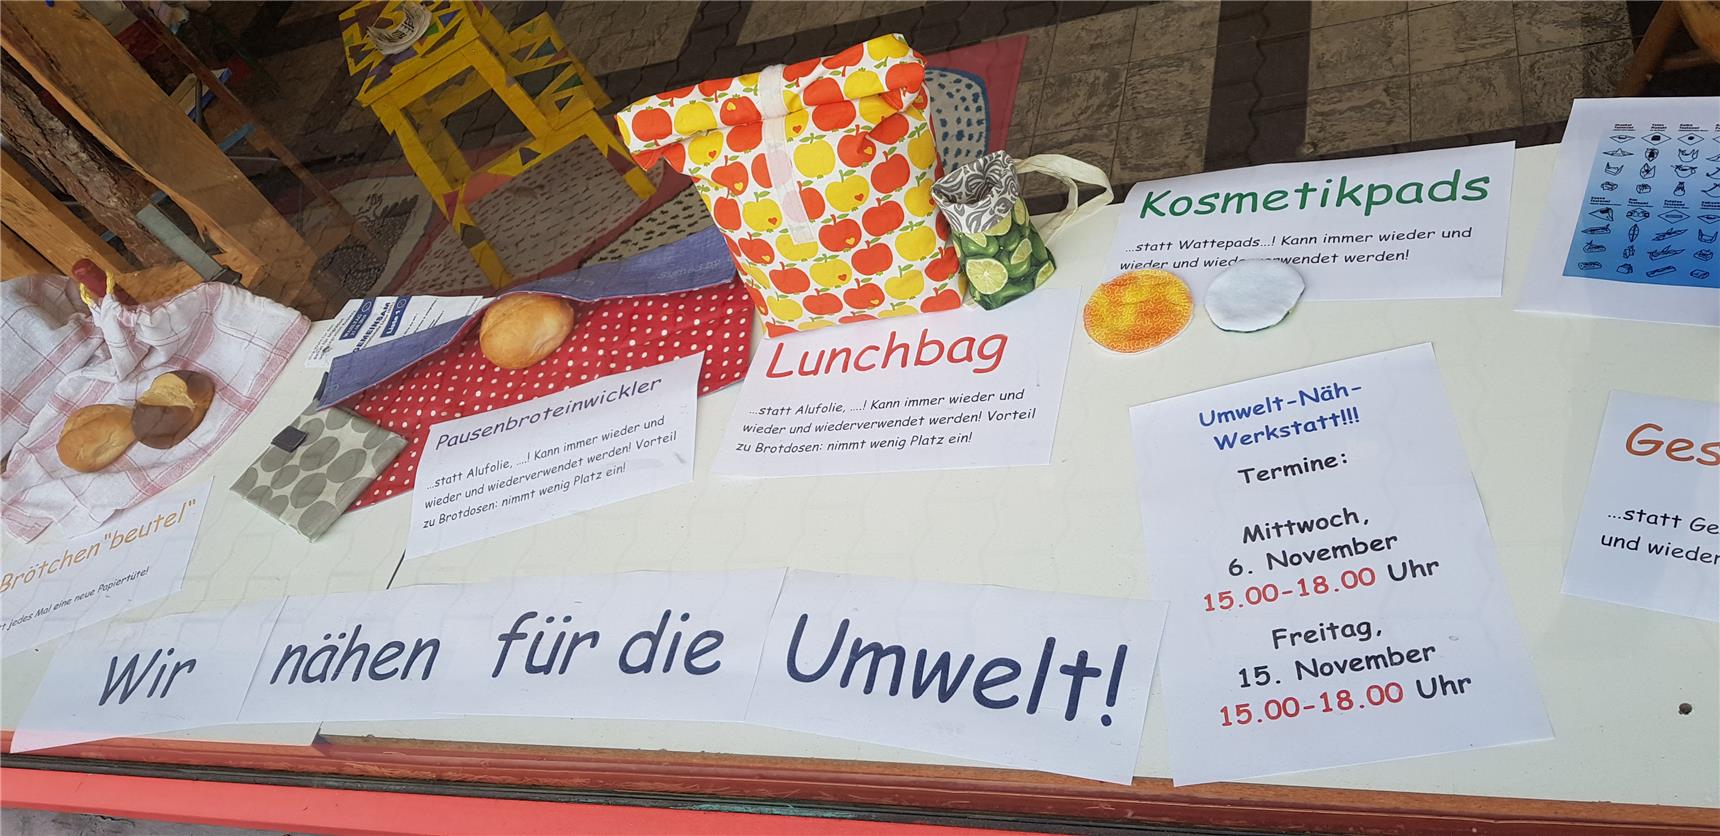 Kosmetikpads
...statt Wattepads...! Kann immer wieder und
wieder und wiederverwendet werden!
GEMEINSAM
Lunchbag
...statt Alufolie, ....! Kann immer wieder und
wieder und wiederverwendet werden! Vorteil
zu Brotdosen: nimmt wenig Platz ein!
Pausenbroteinwickler
...statt Alufolie, ....! Kann immer wieder und
wieder und wiederverwendet werden! Vorteil
zu Brotdosen: nimmt wenig Platz ein!
Brötchen"beutel"
jedes Mal eine neue Papiertüte!
Umwelt-Näh-
Werkstatt!!!
Termine:
Mittwoch,
6. November
15.00-18.00 Uhr
Freitag,
15. November
15.00-18.00 Uhr
Ges
...statt Ge
und wieder
Wir nähen für die Umwelt!